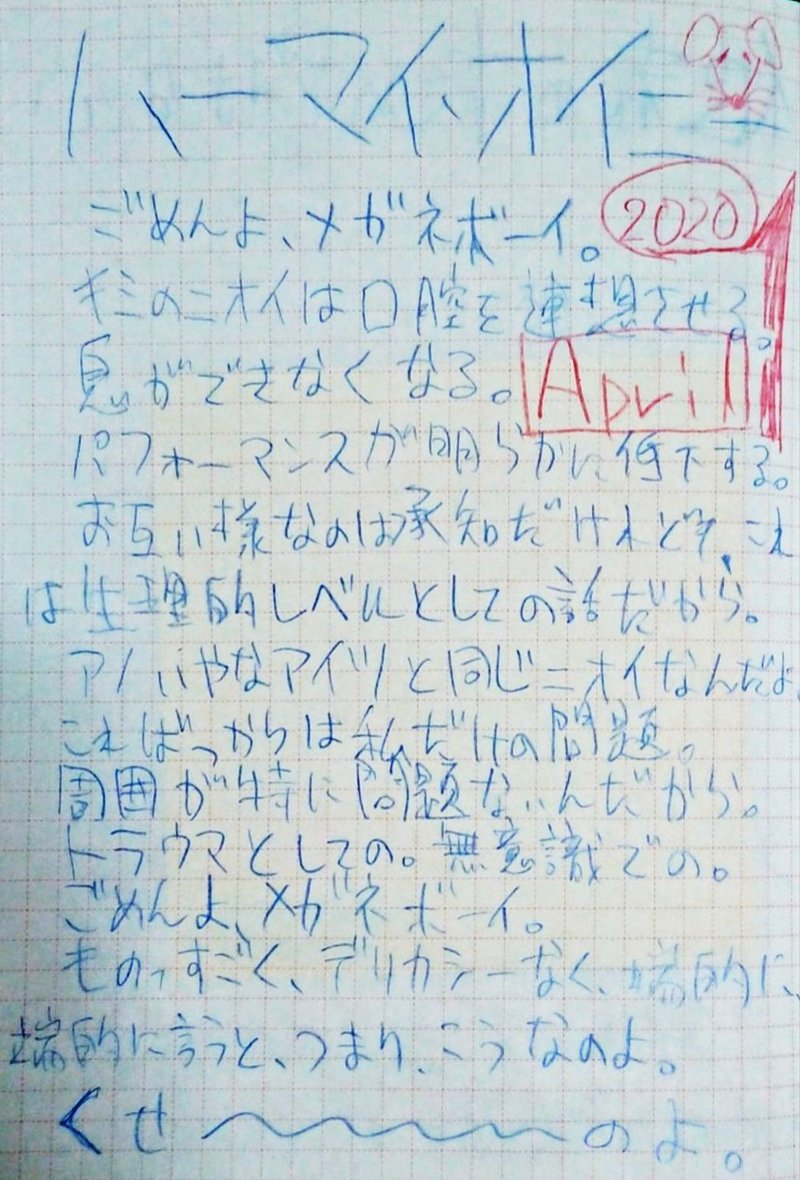 ハーマイ、オイニー
ごめんよ、メガネボーイ。
2020
キミのニオイは口腔を連想させる。
息ができなくなる。
April
1
パフォーマンスが明らかに低下する。
お互い様なのは承知だけれども、これ
は生理的レベルとしての話だから。
アノいやなアイツと同じニオイなんだよ、
こればっからは私だけの問題。
周囲が特に問題ないんだから。
トラウマとしての。無意識での。
ごめんよ、メガネボーイ。
ものっすごく、デリカシーなく、端的に、
端的に言うと、つまり、こうなのよ。
くせ〜〜〜〜のよ。